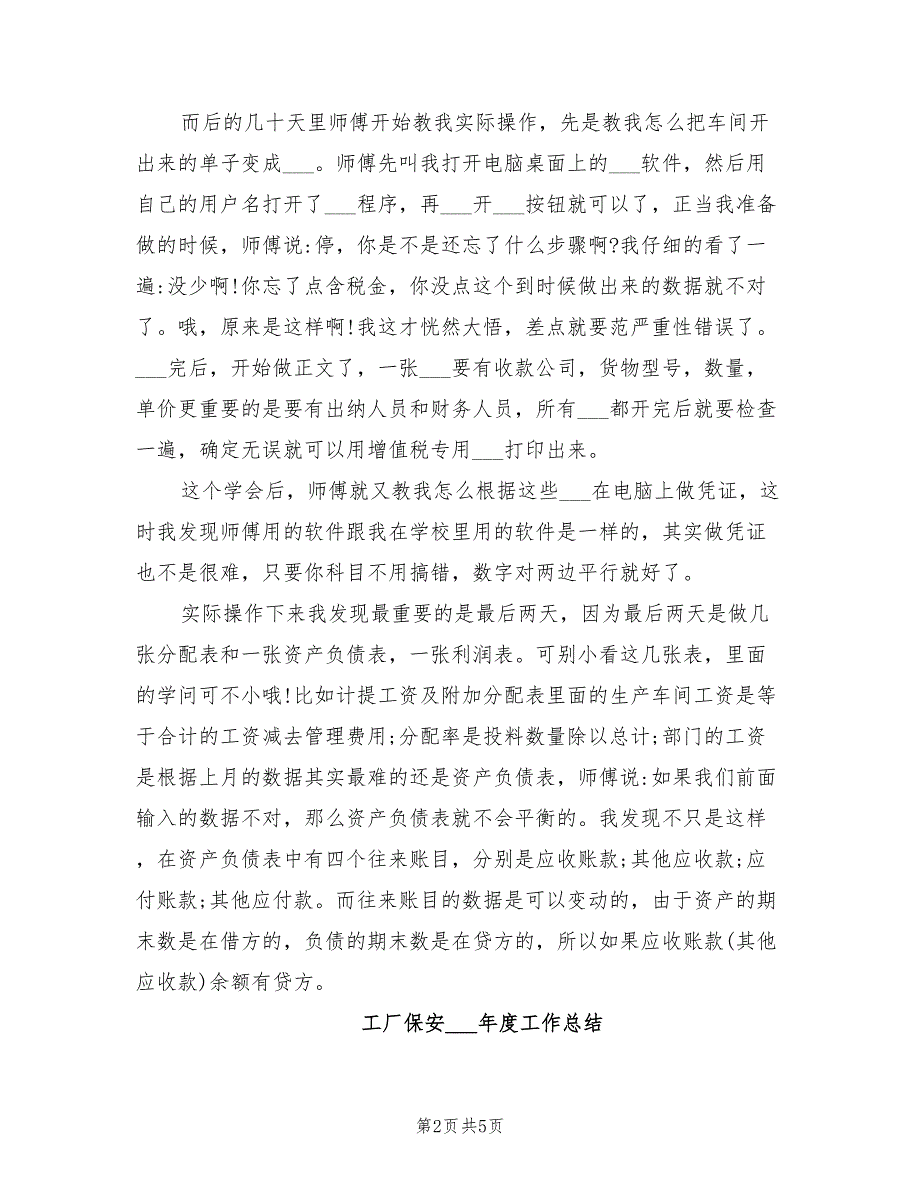 而后的几十天里师傅开始教我实际操作，先是教我怎么把车间开
出来的单子变成___。师傅先叫我打开电脑桌面上的___软件，然后用
自己的用户名打开了___程序，再___开___按钮就可以了，正当我准备
做的时候，师傅说:停，你是不是还忘了什么步骤啊?我仔细的看了一
遍:没少啊!你忘了点含税金，你没点这个到时候做出来的数据就不对
了。哦，原来是这样啊!我这才恍然大悟，差点就要范严重性错误了。
___完后，开始做正文了，一张___要有收款公司，货物型号，数量，
单价更重要的是要有出纳人员和财务人员，所有___都开完后就要检查
一遍，确定无误就可以用增值税专用___打印出来。
这个学会后，师傅就又教我怎么根据这些___在电脑上做凭证，这
时我发现师傅用的软件跟我在学校里用的软件是一样的，其实做凭证
也不是很难，只要你科目不用搞错，数字对两边平行就好了。
实际操作下来我发现最重要的是最后两天，因为最后两天是做几
张分配表和一张资产负债表，一张利润表。可别小看这几张表，里面
的学问可不小哦!比如计提工资及附加分配表里面的生产车间工资是等
于合计的工资减去管理费用;分配率是投料数量除以总计;部门的工资
是根据上月的数据其实最难的还是资产负债表，师傅说:如果我们前面
输入的数据不对，那么资产负债表就不会平衡的。我发现不只是这样
，在资产负债表中有四个往来账目，分别是应收账款;其他应收款;应
付账款;其他应付款。而往来账目的数据是可以变动的，由于资产的期
末数是在借方的，负债的期末数是在贷方的，所以如果应收账款(其他
应收款)余额有贷方。
工厂保安___年度工作总结
第2页共5页